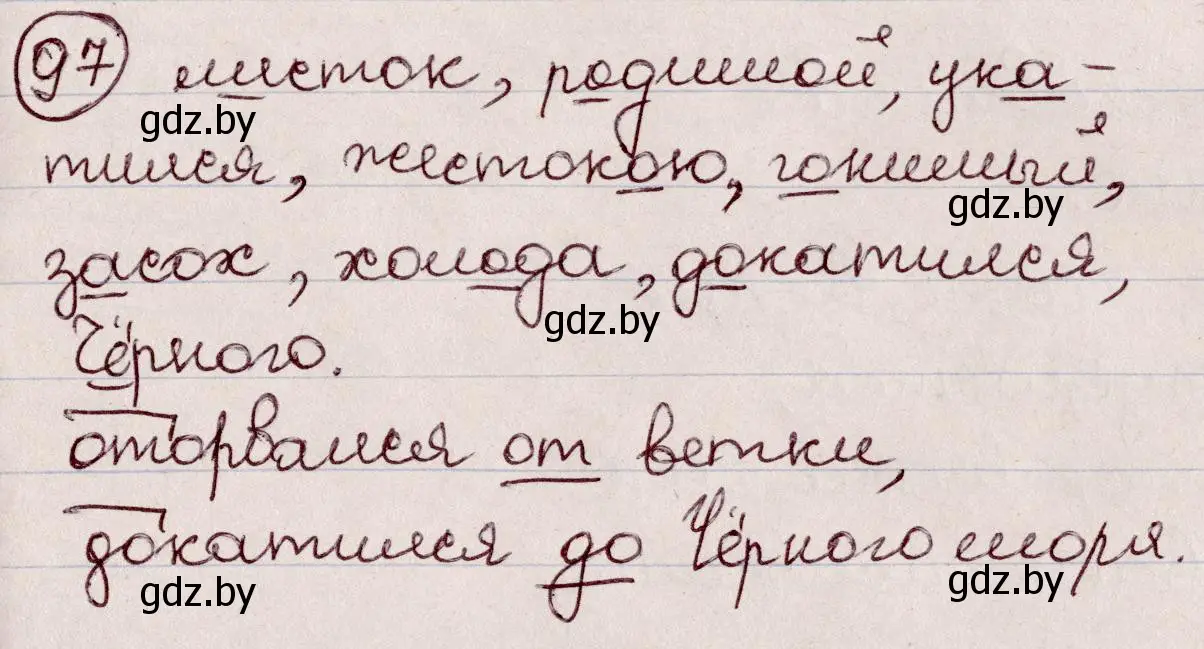 97 листок, родимой, ука-
gdz.by
тился, жестокою, гонимый,
gdz.by
засох, холода, докатился,
gdz.by
Чёрного.
оторвался от ветки,
докатился до Чёрного моря.
gdz.by gdz.by